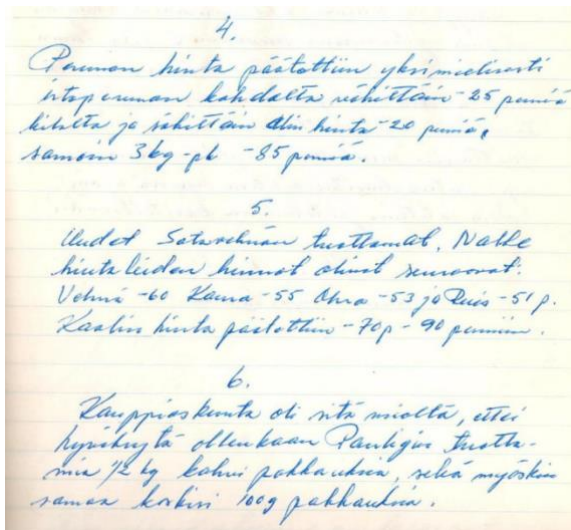 4.
Perunan hinta päätettiin yksimielisesti
irtoperunan kohdalta vähittäin -25 penniä
kilolta ja säkittäin alin hinta -20 penniä,
samoin 3 kg-pl -85 penniä.
5.
Uudet Satavehnän tuottamat, Nalle
hiutaleiden hinnat olivat seuraavat:
Vehnä -60 Kaura -55 Ohra -53 ja Ruis -51 p.
Kaalin hinta päätettiin -70 p - 90 penniin.
6.
Kauppiaskunta oli sitä mieltä, ettei
hyväksytä ollenkaan Pauligin tuotta-
mia 1/2 kg kahvi pakkauksia, sekä myöskin
saman korkin 100g pakkauksia.